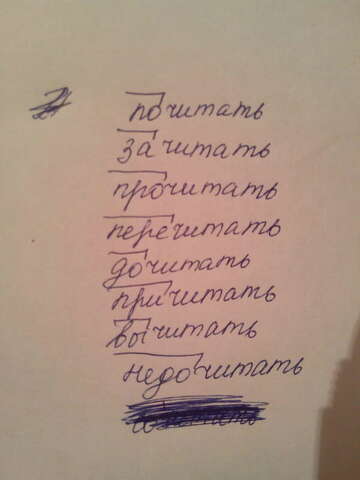 почитать
зачитать
прочитать
перечитать
дочитать
причитать
вычитать
недочитать